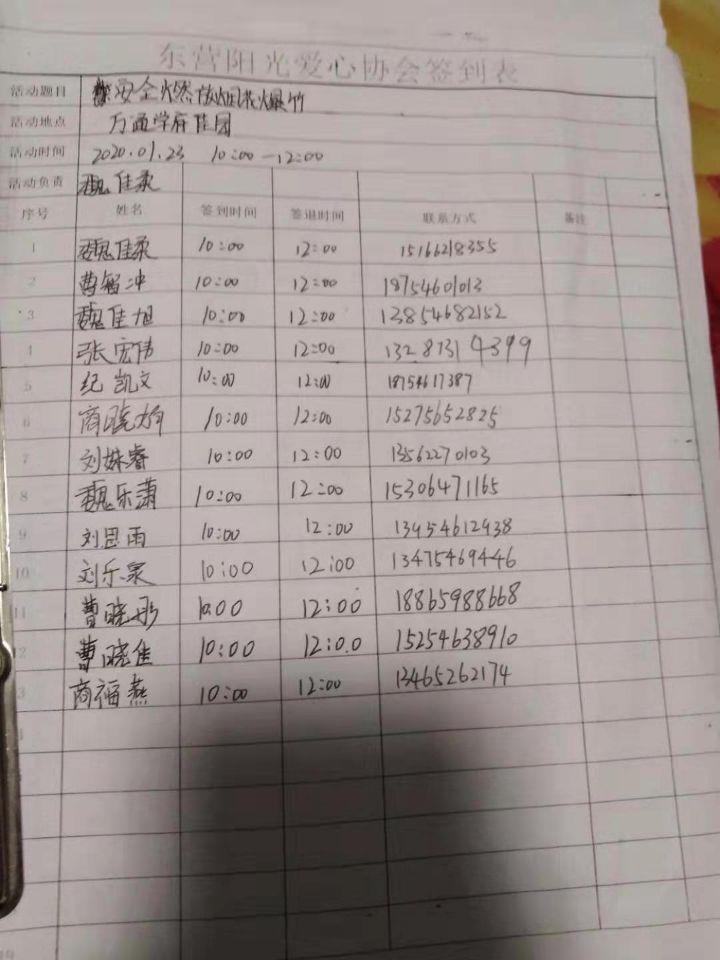 东营阳光爱心协会签到表
活动题目 安全燃放烟花爆竹
活动地点 万通学府佳园
活动时间 2020.01.23 10:00—12:00
活动负责 魏佳柔
序号 姓名 签到时间 签退时间 联系方式 备注
1 魏佳柔 10:00 12:00 15166218355
2 曹智冲 10:00 12:00 18754601013
3 魏佳旭 10:00 12:00 13854682152
4 张宏伟 10:00 12:00 13287314399
5 纪凯文 10:00 12:00 18754617387
6 商晓 10:00 12:00 15275652825
7 刘姝睿 10:00 12:00 13562270103
8 魏乐潇 10:00 12:00 15306471165
9 刘思雨 10:00 12:00 13954612938
10 刘乐泉 10:00 12:00 13475469446
11 曹晓彤 10:00 12:00 18865988668
12 曹晓佳 10:00 12:00 15254638910
3 商福燕 10:00 12:00 13465262174